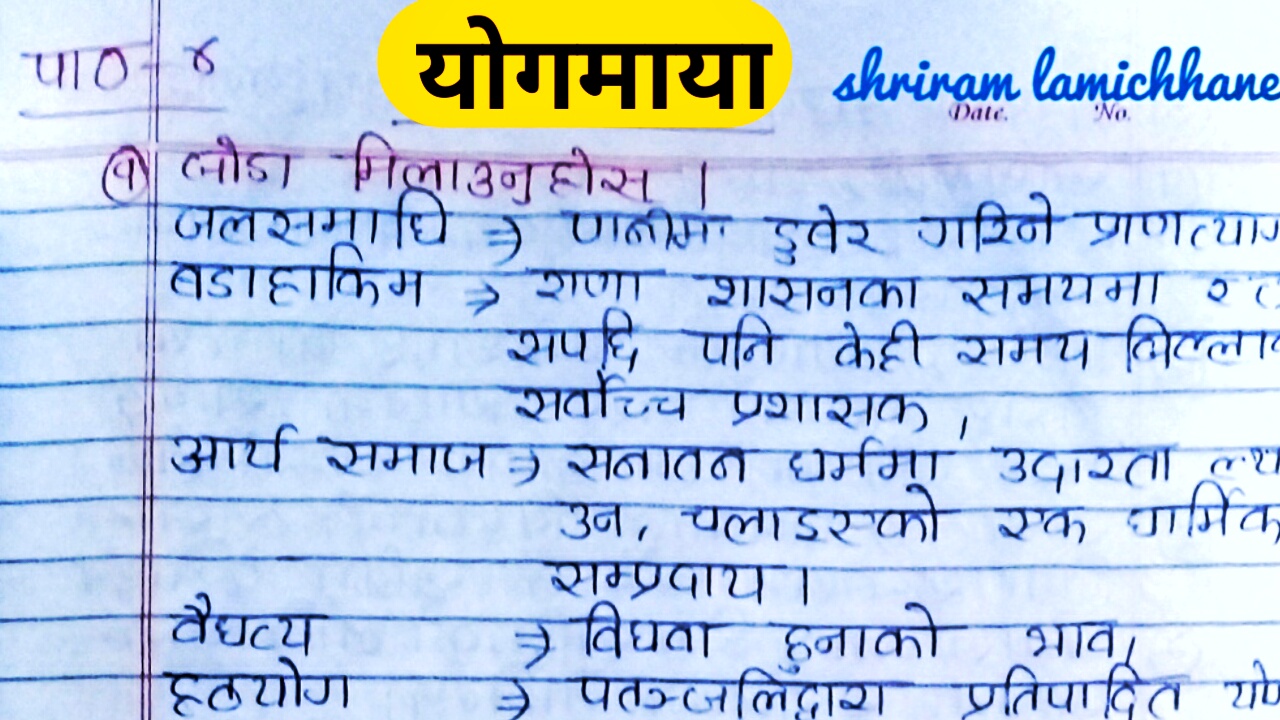 योगमाया
shriram lamichhane
पाठ - ४
Date. No.
(१) जोडा मिलाउनुहोस ।
जलसमाधि ⇒ पानीमा डुबेर गरिने प्राणत्याग
बडाहाकिम ⇒ राणा शासनका समयमा र
सपछि पनि केही समय जिल्ला
सर्वोच्च प्रशासक ,
आर्य समाज ⇒ सनातन धर्ममा उदारता ल्या
उन, चलाइएको एक धार्मिक
सम्प्रदाय ।
वैधव्य ⇒ विधवा हुनाको भाव,
हठयोग ⇒ पतञ्जलिद्वारा प्रतिपादित